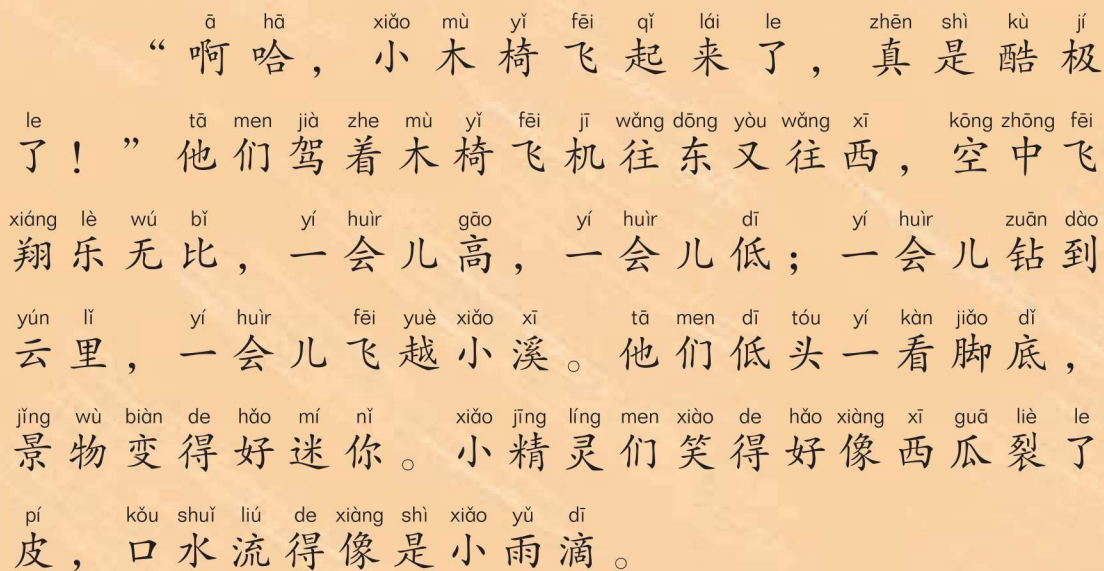 ā hā xiǎo mù yǐ fēi qǐ lái le zhēn shì kù jí
“啊哈，小木椅飞起来了，真是酷极
le tā men jià zhe mù yǐ fēi jī wǎng dōng yòu wǎng xī kōng zhōng fēi
了！”他们驾着木椅飞机往东又往西，空中飞
xiáng lè wú bǐ yí huìr gāo yí huìr dī yí huìr zuān dào
翔乐无比，一会儿高，一会儿低；一会儿钻到
yún lǐ yí huìr fēi yuè xiǎo xī tā men dī tóu yí kàn jiǎo dǐ
云里，一会儿飞越小溪。他们低头一看脚底，
jǐng wù biàn de hǎo mí nǐ xiǎo jīng líng men xiào de hǎo xiàng xī guā liè le
景物变得好迷你。小精灵们笑得好像西瓜裂了
pí kǒu shuǐ liú de xiàng shì xiǎo yǔ dī
皮，口水流得像是小雨滴。